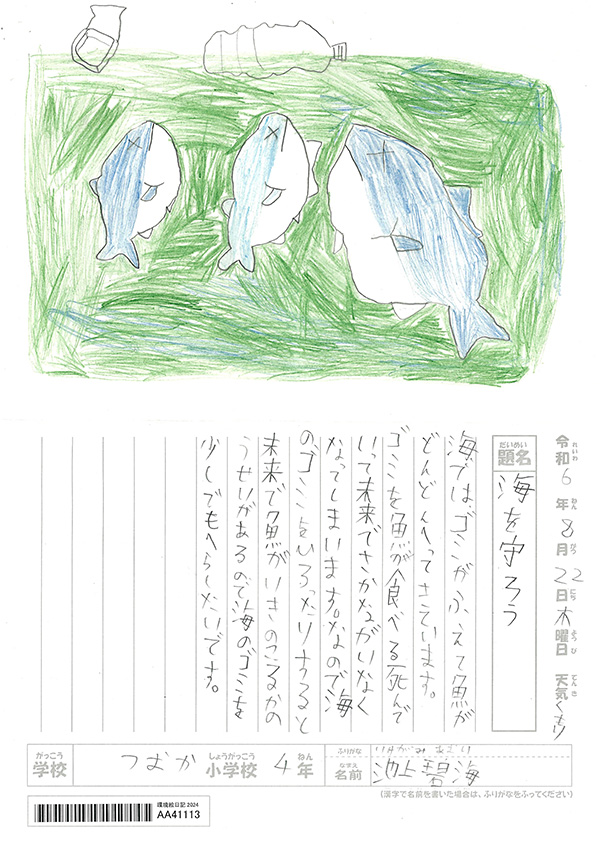 令和6年8月22日木曜日 天気くもり
れいわ ねん がつ にち ようび てんき
だいめい
題名 海を守ろう
海では、ゴミがふえて魚が
どんどんへってきています。
ゴミを魚が食べる死んで
いって未来でさかながいなく
なってしまいます。なので海
の、ゴミをひろったりすると
未来で魚がいきのこるかの
うせいがあるので海のゴミを
少しでもへらしたいです。
がっこう しょうがっこう ねん
学校 つむか 小学校 4年
ふりがな
なまえ
名前 池上碧海
(漢字で名前を書いた場合は、ふりがなをふってください)
環境絵日記 2024
AA41113